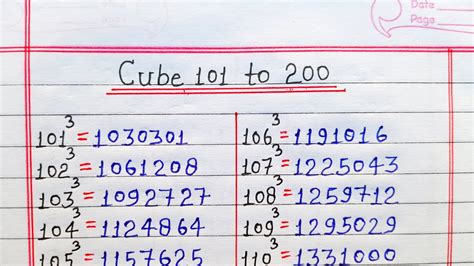 Date
Page
Cube 101 to 200
101³ = 1030301
102³ = 1061208
103³ = 1092727
104³ = 1124864
105³ = 1157625
106³ = 1191016
107³ = 1225043
108³ = 1259712
109³ = 1295029
110³ = 1331000